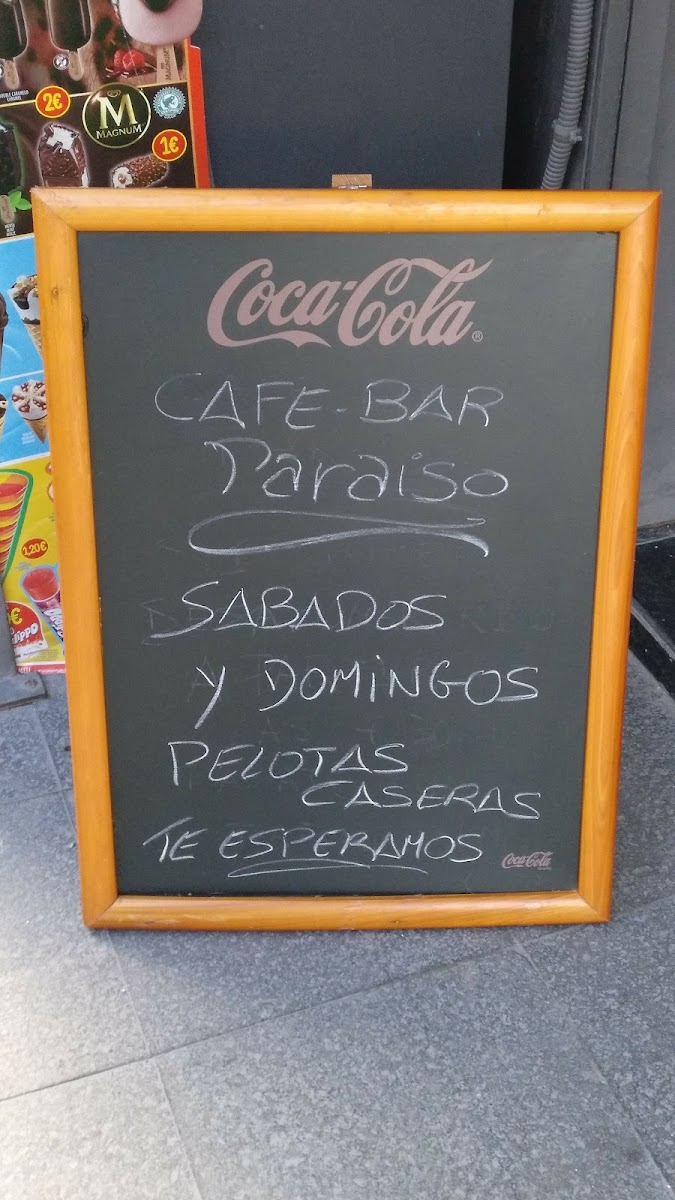 2€
M
MAGNUM
1€
1,20€
Coca-Cola®
CAFE-BAR
Paraiso
SABADOS
Y DOMINGOS
PELOTAS
CASERAS
TE ESPERAMOS
Coca-Cola